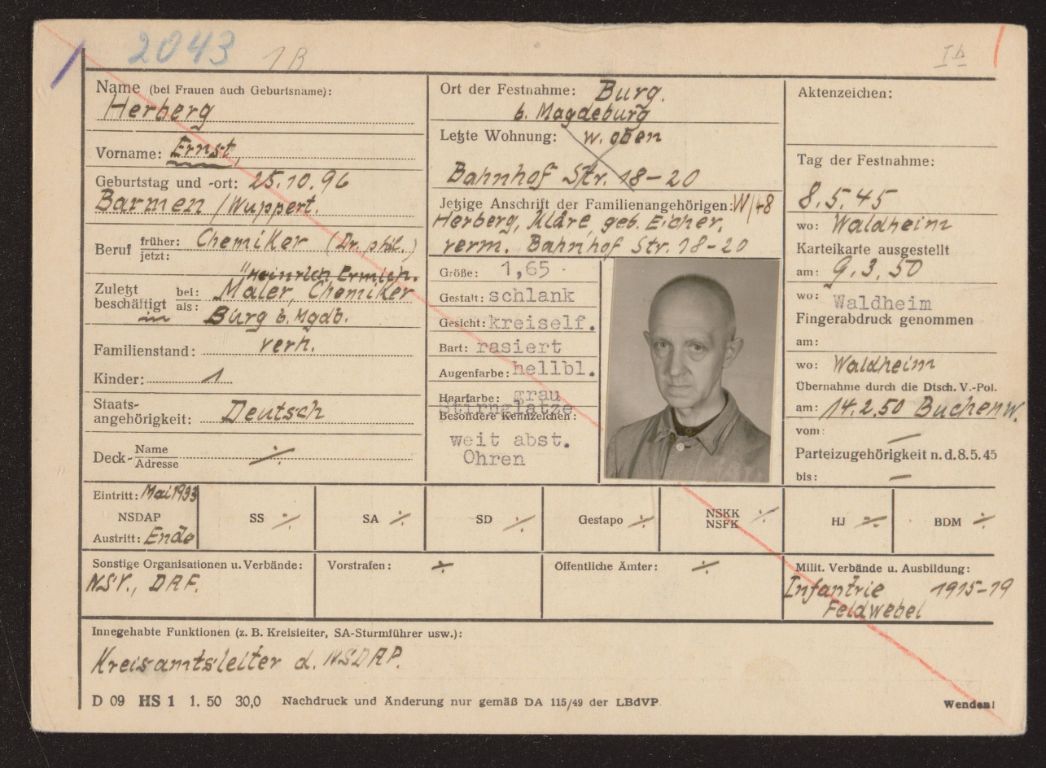 2043
1B
Ib
Name (bei Frauen auch Geburtsname):
Herberg
Vorname: Ernst,
Geburtstag und -ort: 25.10.96
Barmen / Wuppert.
Beruf früher: Chemiker (Dr. phil.)
jetzt:
"Heinrich Ermisch.
Zuletzt beschäftigt bei: Maler, Chemiker
als: Burg b. Mgdb.
in
Familienstand: verh.
Kinder: 1
Staats-
angehörigkeit: Deutsch
Deck- Name
Adresse ./.
Ort der Festnahme: Burg.
b. Magdeburg
Letzte Wohnung: w. oben
Bahnhof Str. 18-20
Jetzige Anschrift der Familienangehörigen: W/48
Herberg, Kläre, geb. Eicher,
verm. Bahnhof Str. 18-20
Größe: 1,65
Gestalt: schlank
Gesicht: kreiself.
Bart: rasiert
Augenfarbe: hellbl.
Haarfarbe: grau
Stirnglatze
Besondere Kennzeichen:
weit abst.
Ohren
Aktenzeichen:
Tag der Festnahme:
8.5.45
wo: Waldheim
Karteikarte ausgestellt
am: 9.3.50
wo: Waldheim
Fingerabdruck genommen
am:
wo: Waldheim
Übernahme durch die Dtsch. V.-Pol.
am: 14.2.50 Buchenw.
vom: —
Parteizugehörigkeit n. d. 8.5.45
bis: —
Eintritt: Mai 1933
NSDAP
Austritt: Ende
SS ./.
SA ./.
SD ./.
Gestapo ./.
NSKK
NSFK ./.
HJ ./.
BDM ./.
Sonstige Organisationen u. Verbände:
NSV., DAF.
Vorstrafen: ./.
Öffentliche Ämter: ./.
Milit. Verbände u. Ausbildung:
Infantrie 1915-19
Feldwebel
Innegehabte Funktionen (z. B. Kreisleiter, SA-Sturmführer usw.):
Kreisamtsleiter d. NSDAP.
D 09 HS 1 1. 50 30,0 Nachdruck und Änderung nur gemäß DA 115/49 der LBdVP.
Wenden!